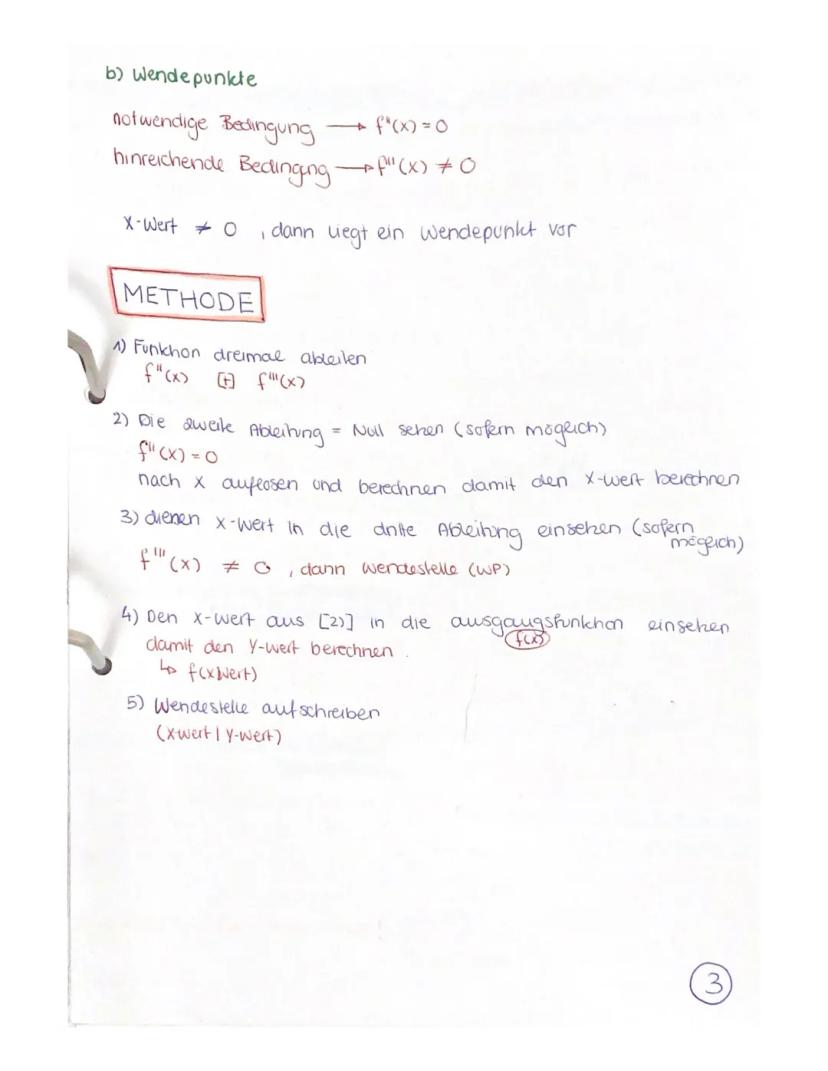 b) Wendepunkte
notwendige Bedingung → f''(x) = 0
hinreichende Bedingung → f'''(x) ≠ 0
X-Wert ≠ 0 , dann liegt ein Wendepunkt vor
METHODE
1) Funktion dreimal ableiten
f''(x) [+] f'''(x)
2) Die zweite Ableitung = Null setzen (sofern möglich)
f''(x) = 0
nach x auflösen und berechnen damit den X-Wert berechnen
3) diesen X-Wert in die dritte Ableitung einsetzen (sofern
möglich)
f'''(x) ≠ 0 , dann Wendestelle (WP)
4) Den X-Wert aus [2)] in die Ausgangsfunktion einsetzen
f(x)
damit den Y-Wert berechnen .
↳ f(xWert)
5) Wendestelle aufschreiben
(X-Wert | Y-Wert)
3